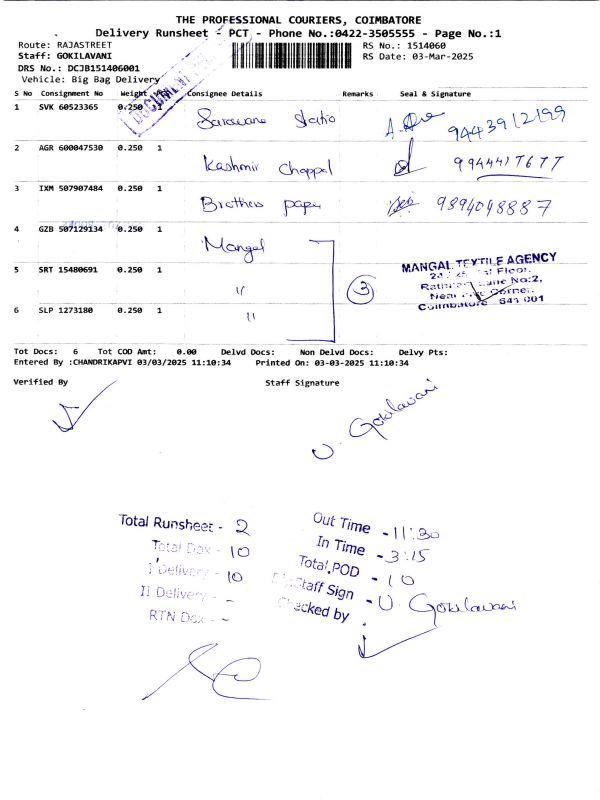 THE PROFESSIONAL COURIERS, COIMBATORE
Delivery Runsheet - PCT - Phone No.:0422-3505555 - Page No.:1
Route: RAJASTREET RS No.: 1514060
Staff: GOKILAVANI RS Date: 03-Mar-2025
DRS No.: DCJB151406001
Vehicle: Big Bag Delivery
DOCUMENT
S No Consignment No Weight PCS Consignee Details Remarks Seal & Signature
1 SVK 60523365 0.250 1 Saravana Statio 9443912199
2 AGR 600047530 0.250 1 Kashmir Chappel 9944417677
3 IXM 507907484 0.250 1 Brothers pape 9894048887
4 GZB 507129134 0.250 1 Mangal
5 SRT 15480691 0.250 1 "
6 SLP 1273180 0.250 1 "
3
MANGAL TEXTILE AGENCY
Floor,
Lane No:2,
Near Corner,
Coimbatore 641 001
Tot Docs: 6 Tot COD Amt: 0.00 Delvd Docs: Non Delvd Docs: Delvy Pts:
Entered By :CHANDRIKAPVI 03/03/2025 11:10:34 Printed On: 03-03-2025 11:10:34
Verified By Staff Signature
U. Gokilavani
Total Runsheet - 2
Total Dox - 10
I Delivery - 10
II Delivery - -
RTN Dox - -
Out Time - 11:30
In Time - 3:15
Total.POD - 10
Staff Sign - U. Gokilavani
Checked by